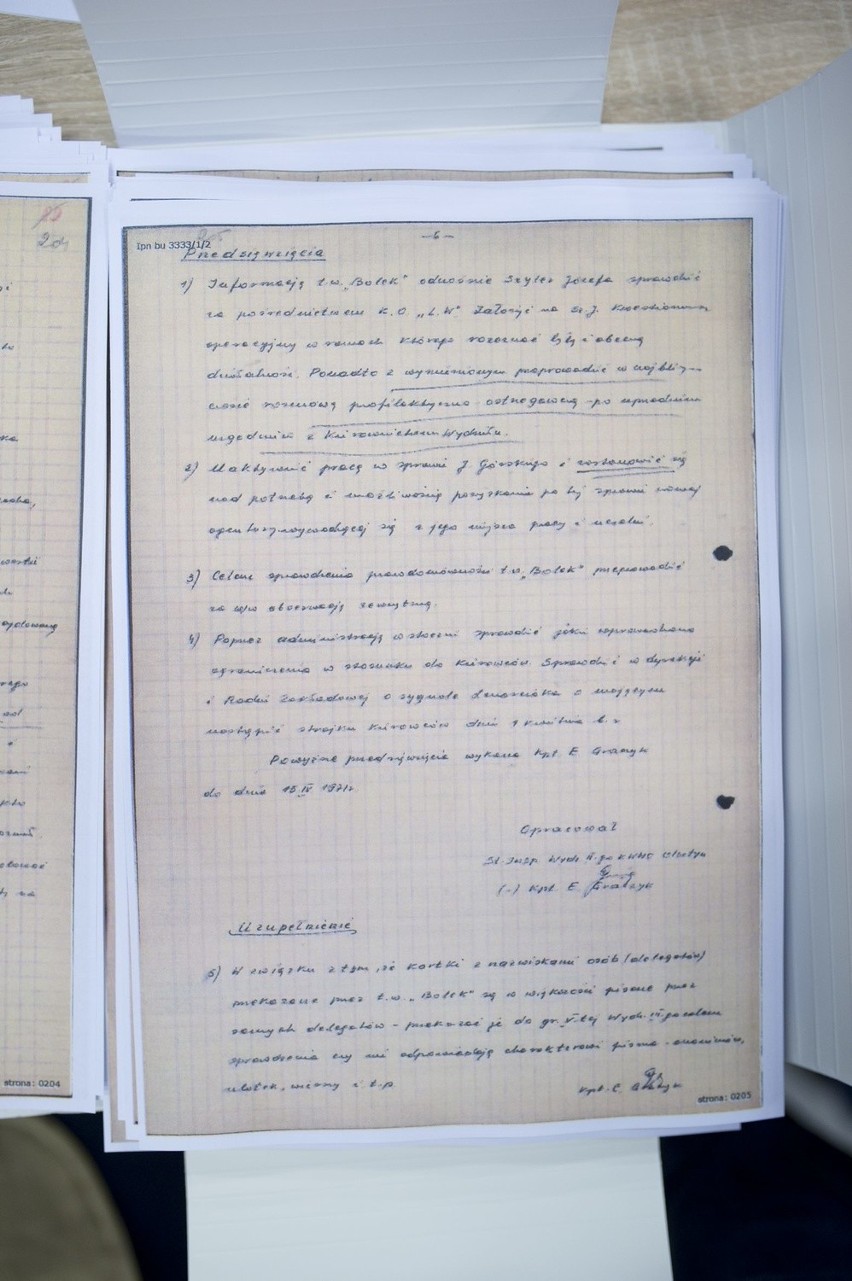 Ipn bu 3333/1/2
-6-
Przedsięwzięcia
1) Informacją t.w. „Bolek" odnośnie Szyler Józefa sprawdzić
za pośrednictwem K.O. „L.W." Założyć na Sz. J. kwestionariusz
operacyjny w ramach którego rozeznać byłą i obecną
działalność. Ponadto z wymienionym przeprowadzić w najbliż-
czasie rozmowę profilaktyczno-ostrzegawczą - po uprzednim
uzgodnieniu z Kierownictwem Wydziału.
2) Uaktywnić pracę w sprawie J. Górskiego i zastanowić się
nad potrzebą i możliwością pozyskania po tej sprawie nowej
agentury wywodzącej się z jego miejsca pracy i uczelni.
3) Celem sprawdzenia prawdomówności t.w. „Bolek" przeprowadzić
za w/w obserwację zewnętrzną.
4) Poprzez administrację w stoczni sprawdzić jakie wprowadzono
ograniczenia w stosunku do kierowców. Sprawdzić w dyrekcji
i Radzie Zakładowej o sygnale o mającym
nastąpić strajku kierowców dnia 1 kwietnia b.r.
Powyższe przedsięwzięcia wykona kpt. E. Graczyk
do dnia 15 IV 1971r.
Opracował
St. Insp. Wydz. II-go KWMO Olsztyn
(-) Kpt. E. Graczyk
Uzupełnienie
5) W związku z tym, że kartki z nazwiskami osób (delegatów)
przekazane przez t.w. „Bolek" są w większości pisane przez
samych delegatów - przekazać je do gr. V-tej Wydz. III-go celem
sprawdzenia czy nie odpowiadają charakterowi pisma - anonimów,
ulotek, wierszy i t.p.
kpt. E. Graczyk
strona: 0205
204
strona: 0204